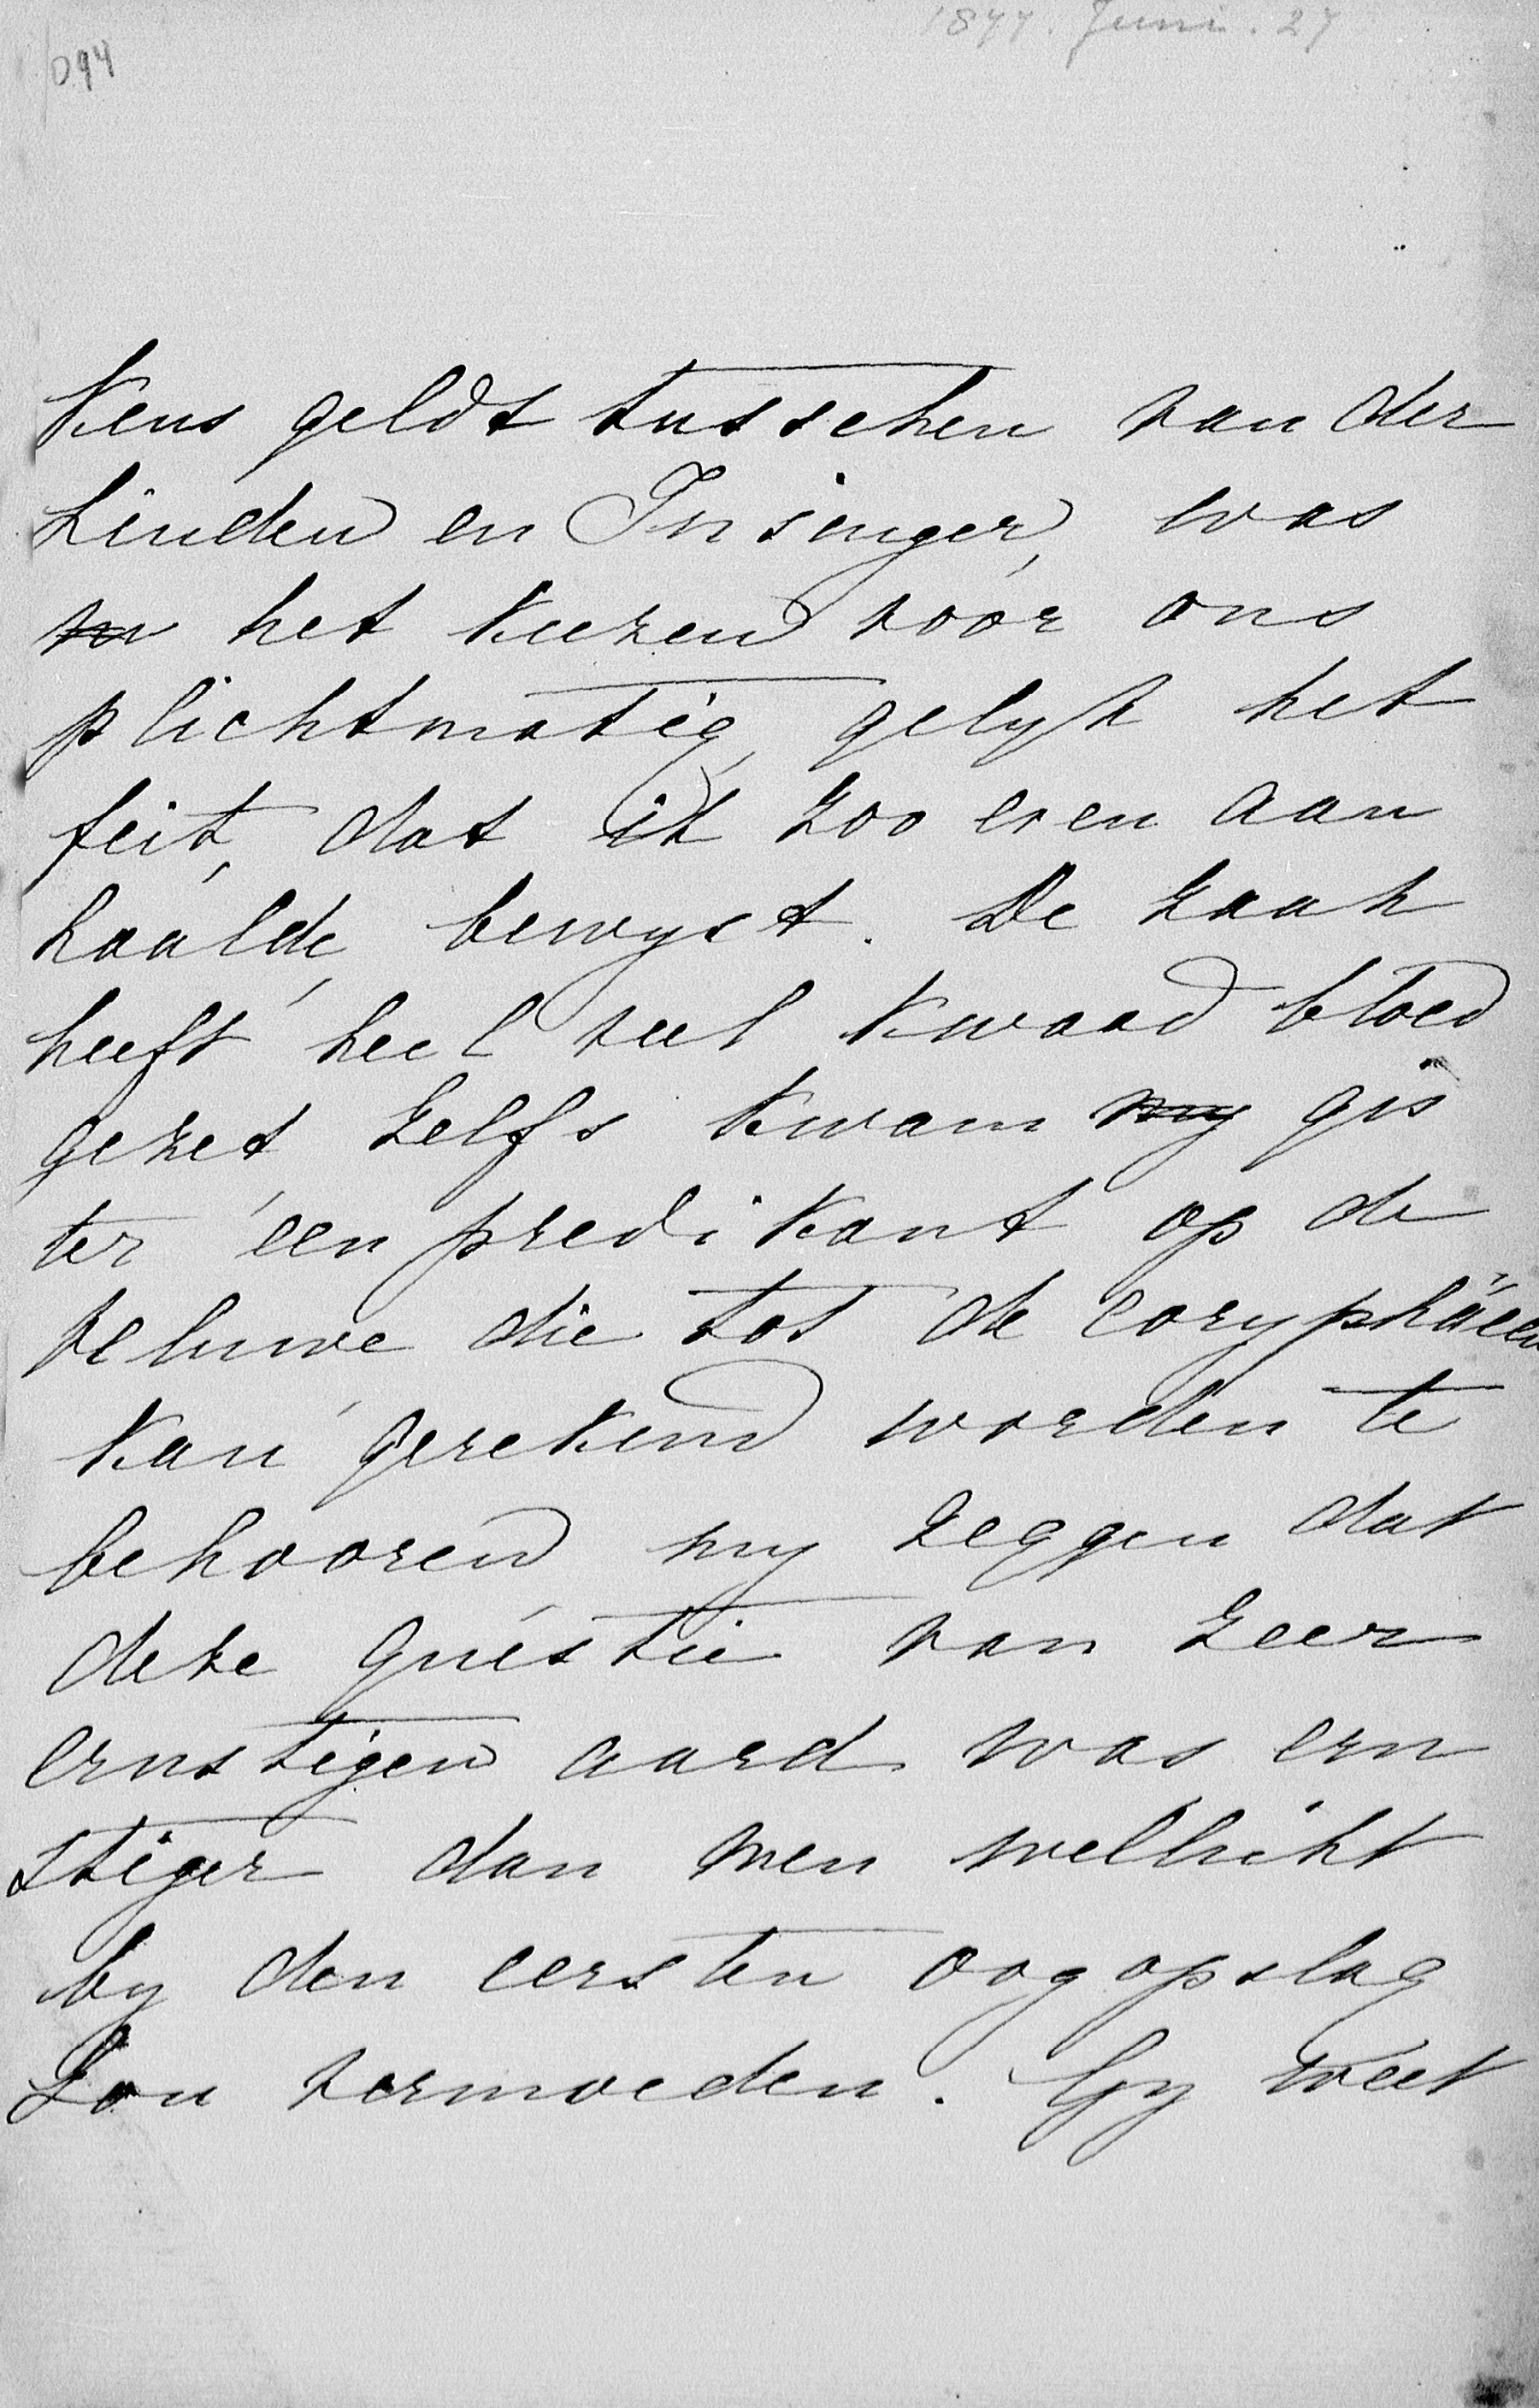 1877. Juni. 27
094
keus geldt tusschen van der
Linden en Insinger, was
het kiezen vóór ons
plichtmatig, gelijk het
feit, dat ik zoo even aan
haalde, bewijst. De zaak
heeft heel veel kwaad bloed
gezet zelfs kwam my gis
ter een predikant op de
Veluwe die tot de coryphäeen
kan gerekend worden te
behooren my zeggen dat
deze questie van zeer
ernstigen aard was ern
stiger dan men wellicht
by den eersten oogopslag
zou vermoeden. Gy weet